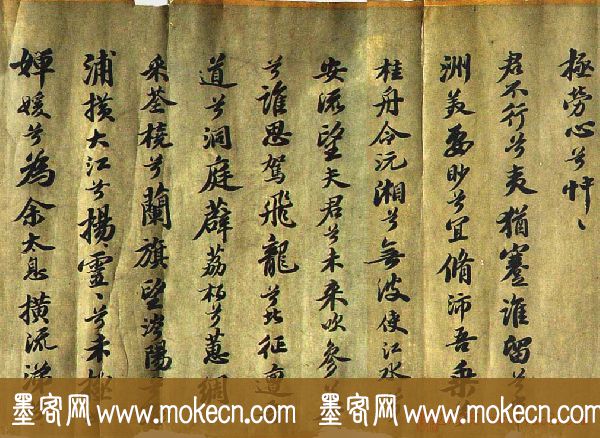 極勞心兮忡〻
君不行兮夷猶蹇誰留兮
洲美要眇兮宜脩沛吾乘
桂舟令沅湘兮無波使江水
安流望夫君兮未來吹參
兮誰思駕飛龍兮北征邅
道兮洞庭薜荔柏兮蕙綢
采荃橈兮蘭旗望涔陽
浦橫大江兮揚靈〻兮未極
嬋媛兮為余太息橫流涕
墨客网 www.mokecn.com 墨客网 www.mokecn.com